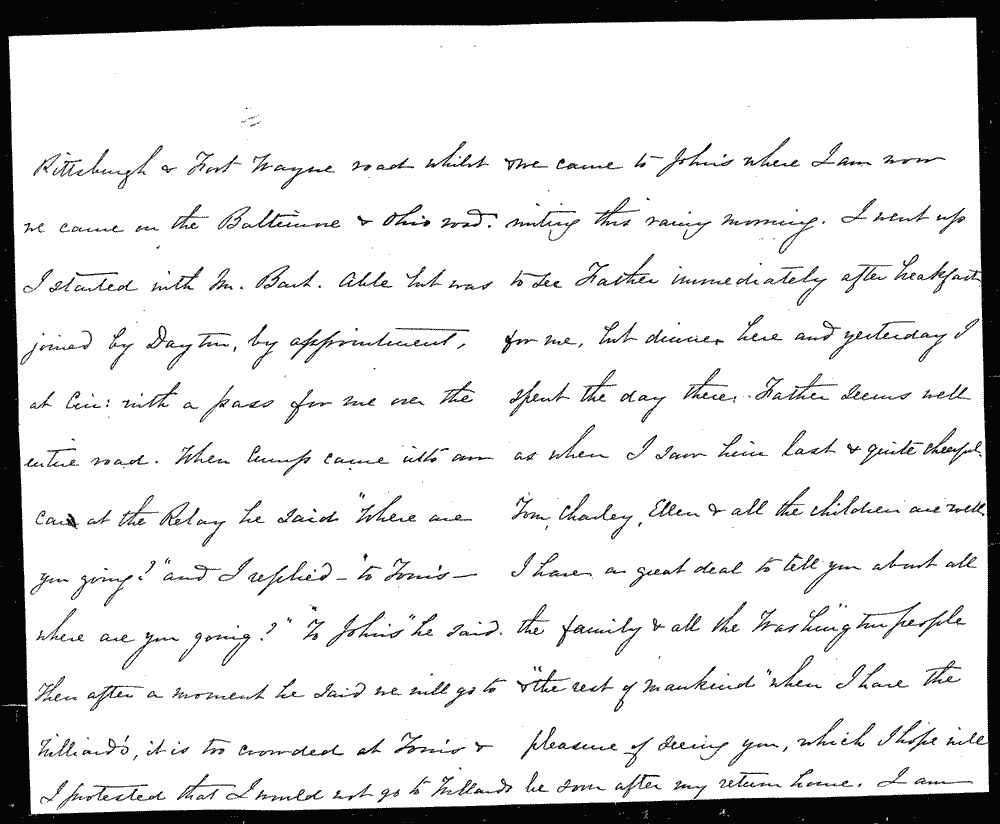 Pittsburgh & Fort Wayne road whilst
we came on the Baltimore & Ohio road.
I started with Mr. Bart. Able but was
joined by Dayton, by appointment,
at Cin: with a pass for me over the
entire road. When Cump came into our
car at the Relay he said "Where are
you going?" and I replied – "to Tom's –
where are you going?" "To John's" he said.
Then after a moment he said we will go to
Willard's, it is too crowded at Tom's &
I protested that I would not go to Willards
& we came to John's where I am now
writing this rainy morning. I went up
to see Father immediately after breakfast
for me, but dinner here and yesterday I
spent the day there. Father seems well
as when I saw him last & quite cheerful.
Tom, Charley, Ellen & all the children are well.
I have a great deal to tell you about all
the family & all the Washington people
& "the rest of mankind" when I have the
pleasure of seeing you, which I hope will
be soon after my return home. I am